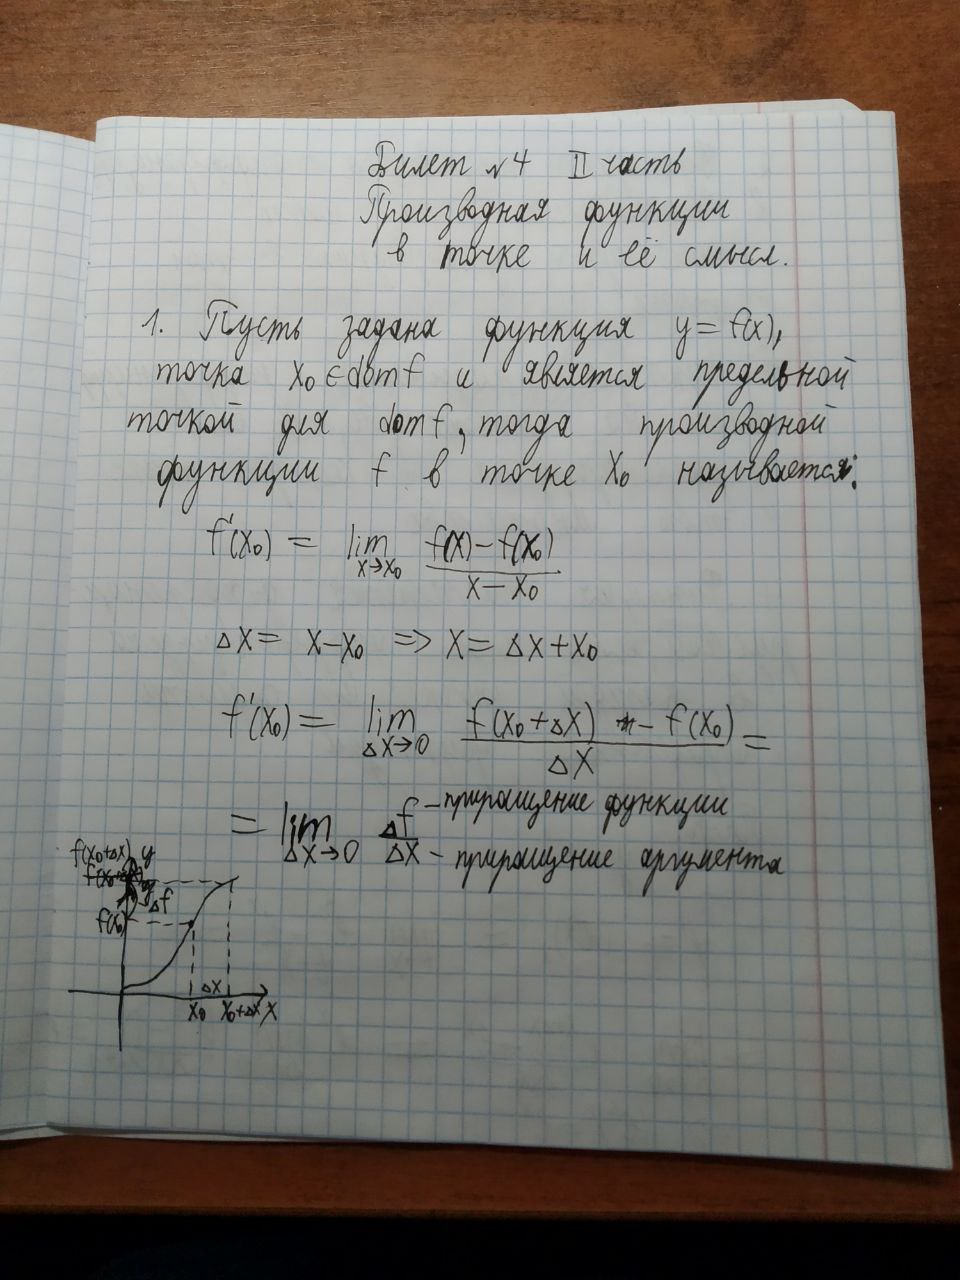 Билет №4 II часть
Производная функции
в точке и её смысл.
1. Пусть задана функция y = f(x),
точка x₀ ∈ domf и является предельной
точкой для domf, тогда производной
функции f в точке x₀ называется:
f'(x₀) = lim x→x₀ (f(x) − f(x₀)) / (x − x₀)
Δx = x − x₀ => x = Δx + x₀
f'(x₀) = lim Δx→0 (f(x₀+Δx) − f(x₀)) / Δx =
= lim Δx→0 Δf / Δx
Δf – приращение функции
Δx – приращение аргумента
f(x₀+Δx) y
Δf
f(x₀)
Δx
x₀ x₀+Δx x